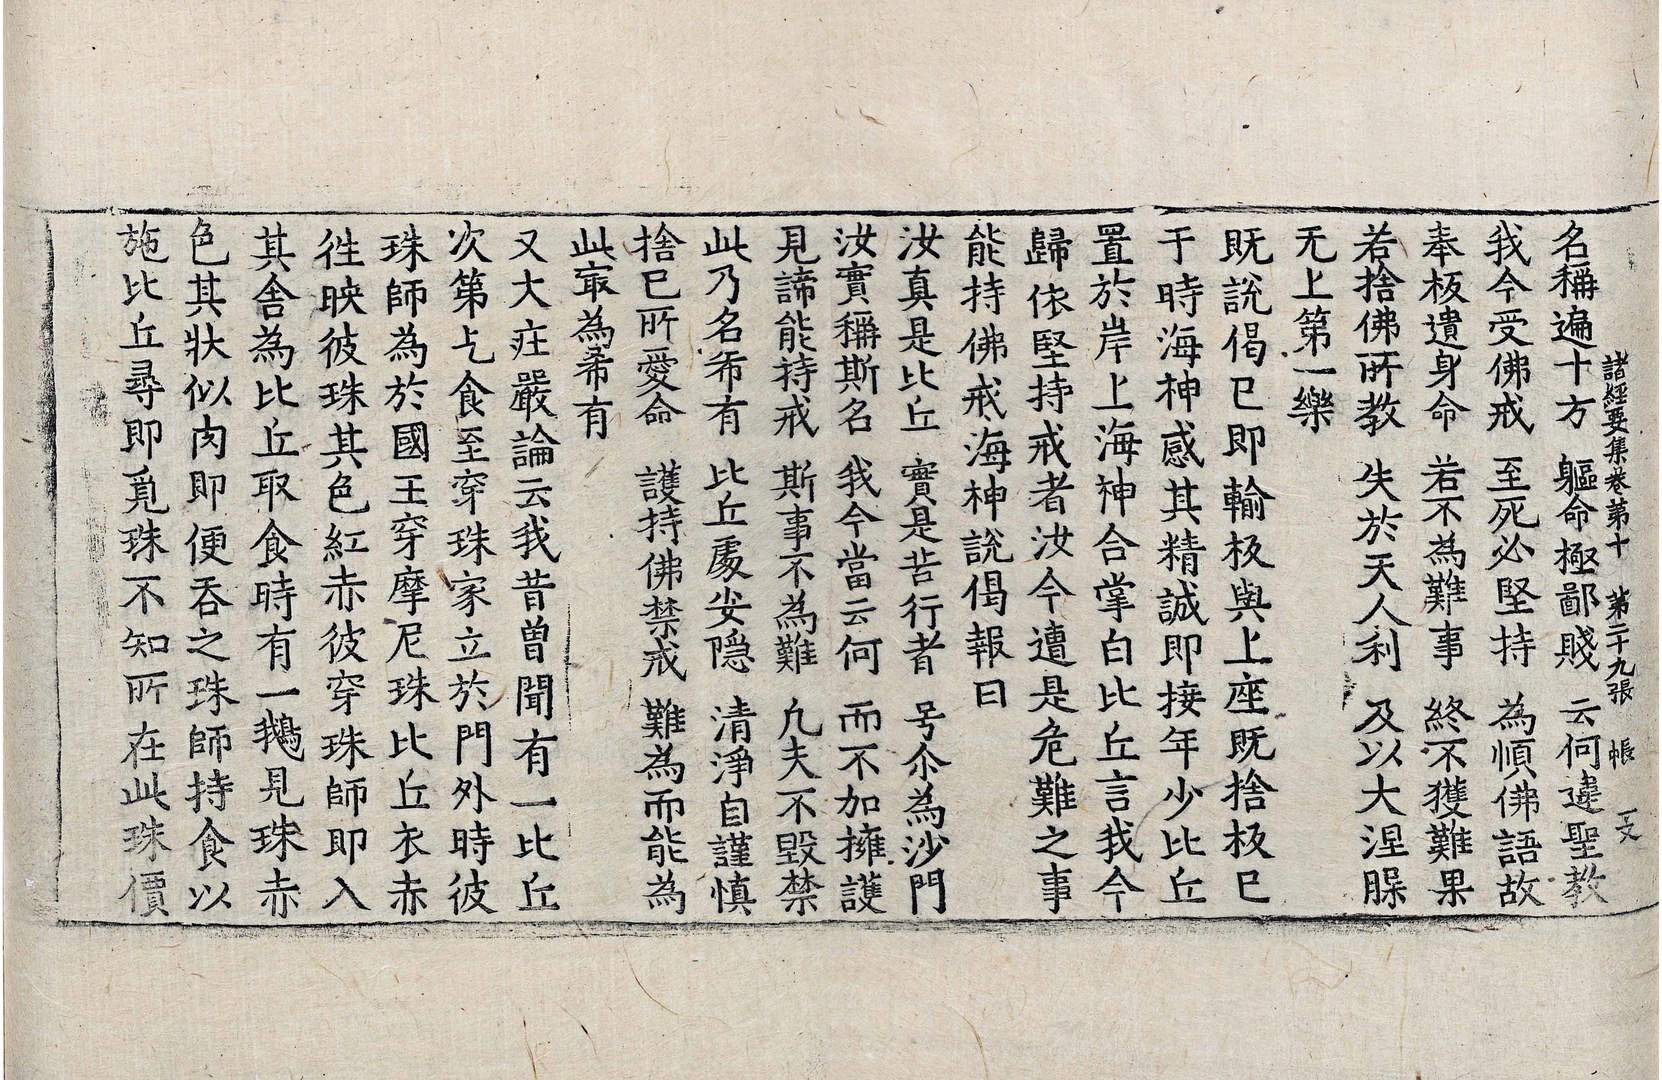 諸經要集卷第十　第二十九張　帳　文
名稱遍十方　軀命極鄙賤　云何違聖教
我今受佛戒　至死必堅持　為順佛語故
奉板遺身命　若不為難事　終不獲難果
若捨佛所教　失於天人利　及以大涅脲
无上第一樂
既說偈已即輸板與上座既捨板已
于時海神感其精誠即接年少比丘
置於岸上海神合掌白比丘言我今
歸依堅持戒者汝今遭是危難之事
能持佛戒海神說偈報曰
汝真是比丘　實是苦行者　号尒為沙門
汝實稱斯名　我今當云何　而不加擁護
見諦能持戒　斯事不為難　凢夫不毀禁
此乃名希有　比丘處安隱　清淨自謹慎
捨已所愛命　護持佛禁戒　難為而能為
此㝡為希有
又大莊嚴論云我昔曽聞有一比丘
次第乞食至穿珠家立於門外時彼
珠師為於國王穿摩尼珠比丘衣赤
徃映彼珠其色紅赤彼穿珠師即入
其舍為比丘取食時有一鵝見珠赤
色其狀似肉即便吞之珠師持食以
施比丘尋即覓珠不知所在此珠價